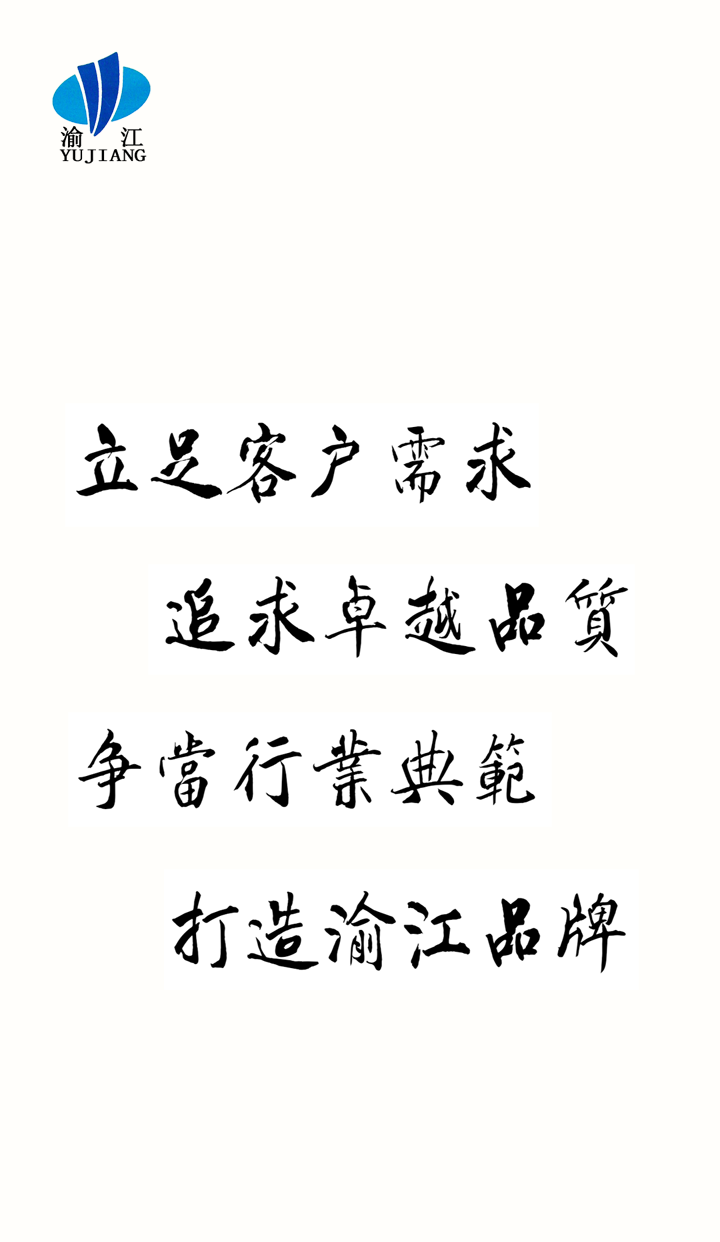 渝江
YUJIANG
立足客户需求
追求卓越品質
争當行業典範
打造渝江品牌